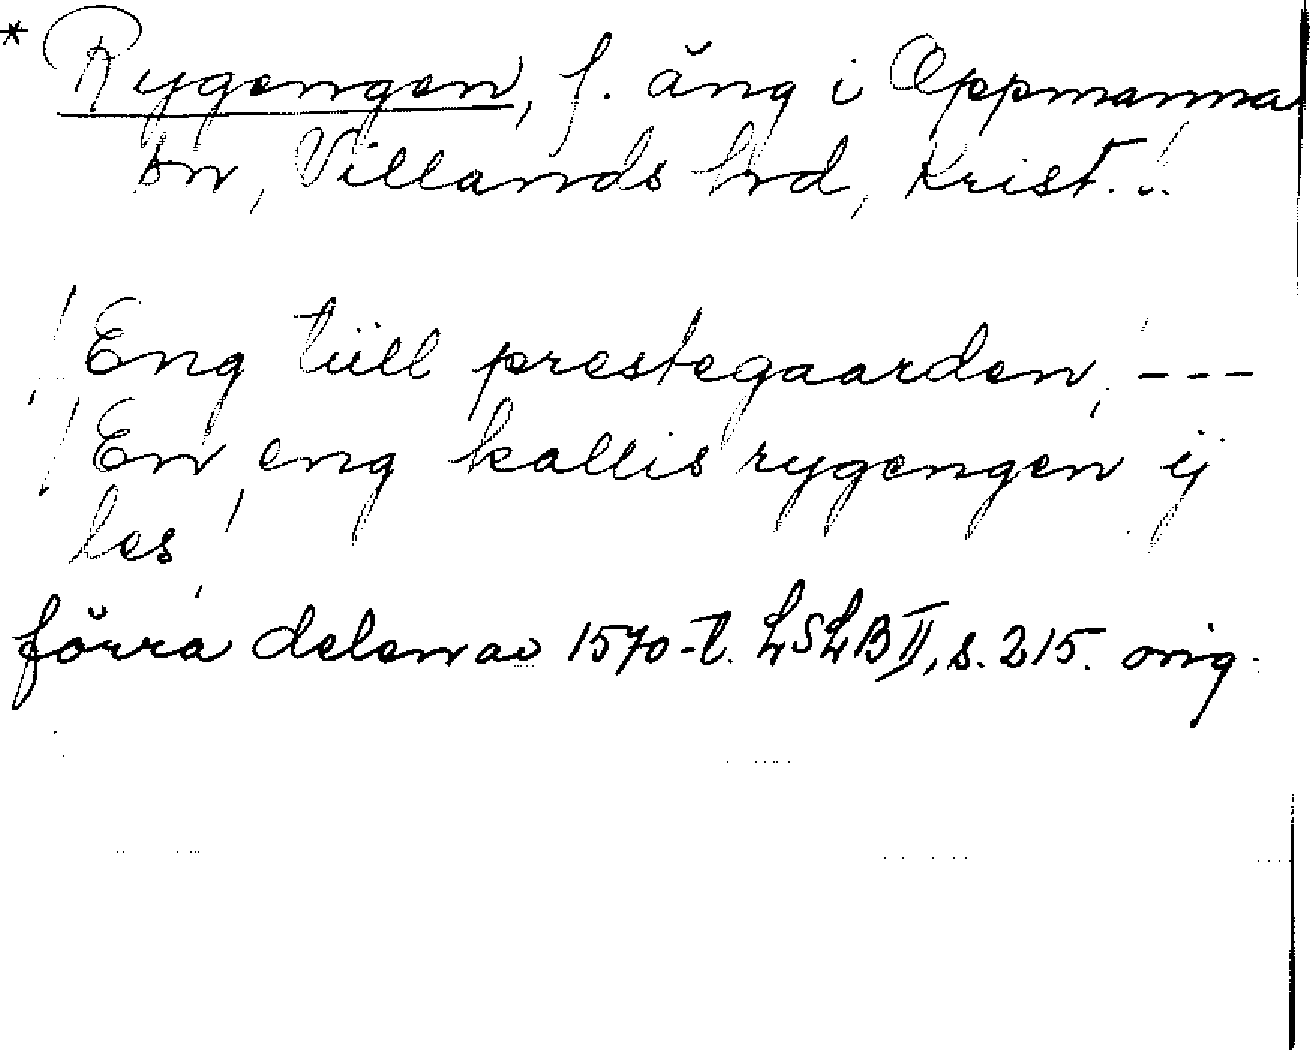 * Rygengen, f. äng i Oppmanna
sn, Villands hrd, Krist. l.
Eng tiill prestegaarden, ---
En eng kallis rygengen ij
les
förra delen av 1570-t. LSLB II, s. 215. orig.